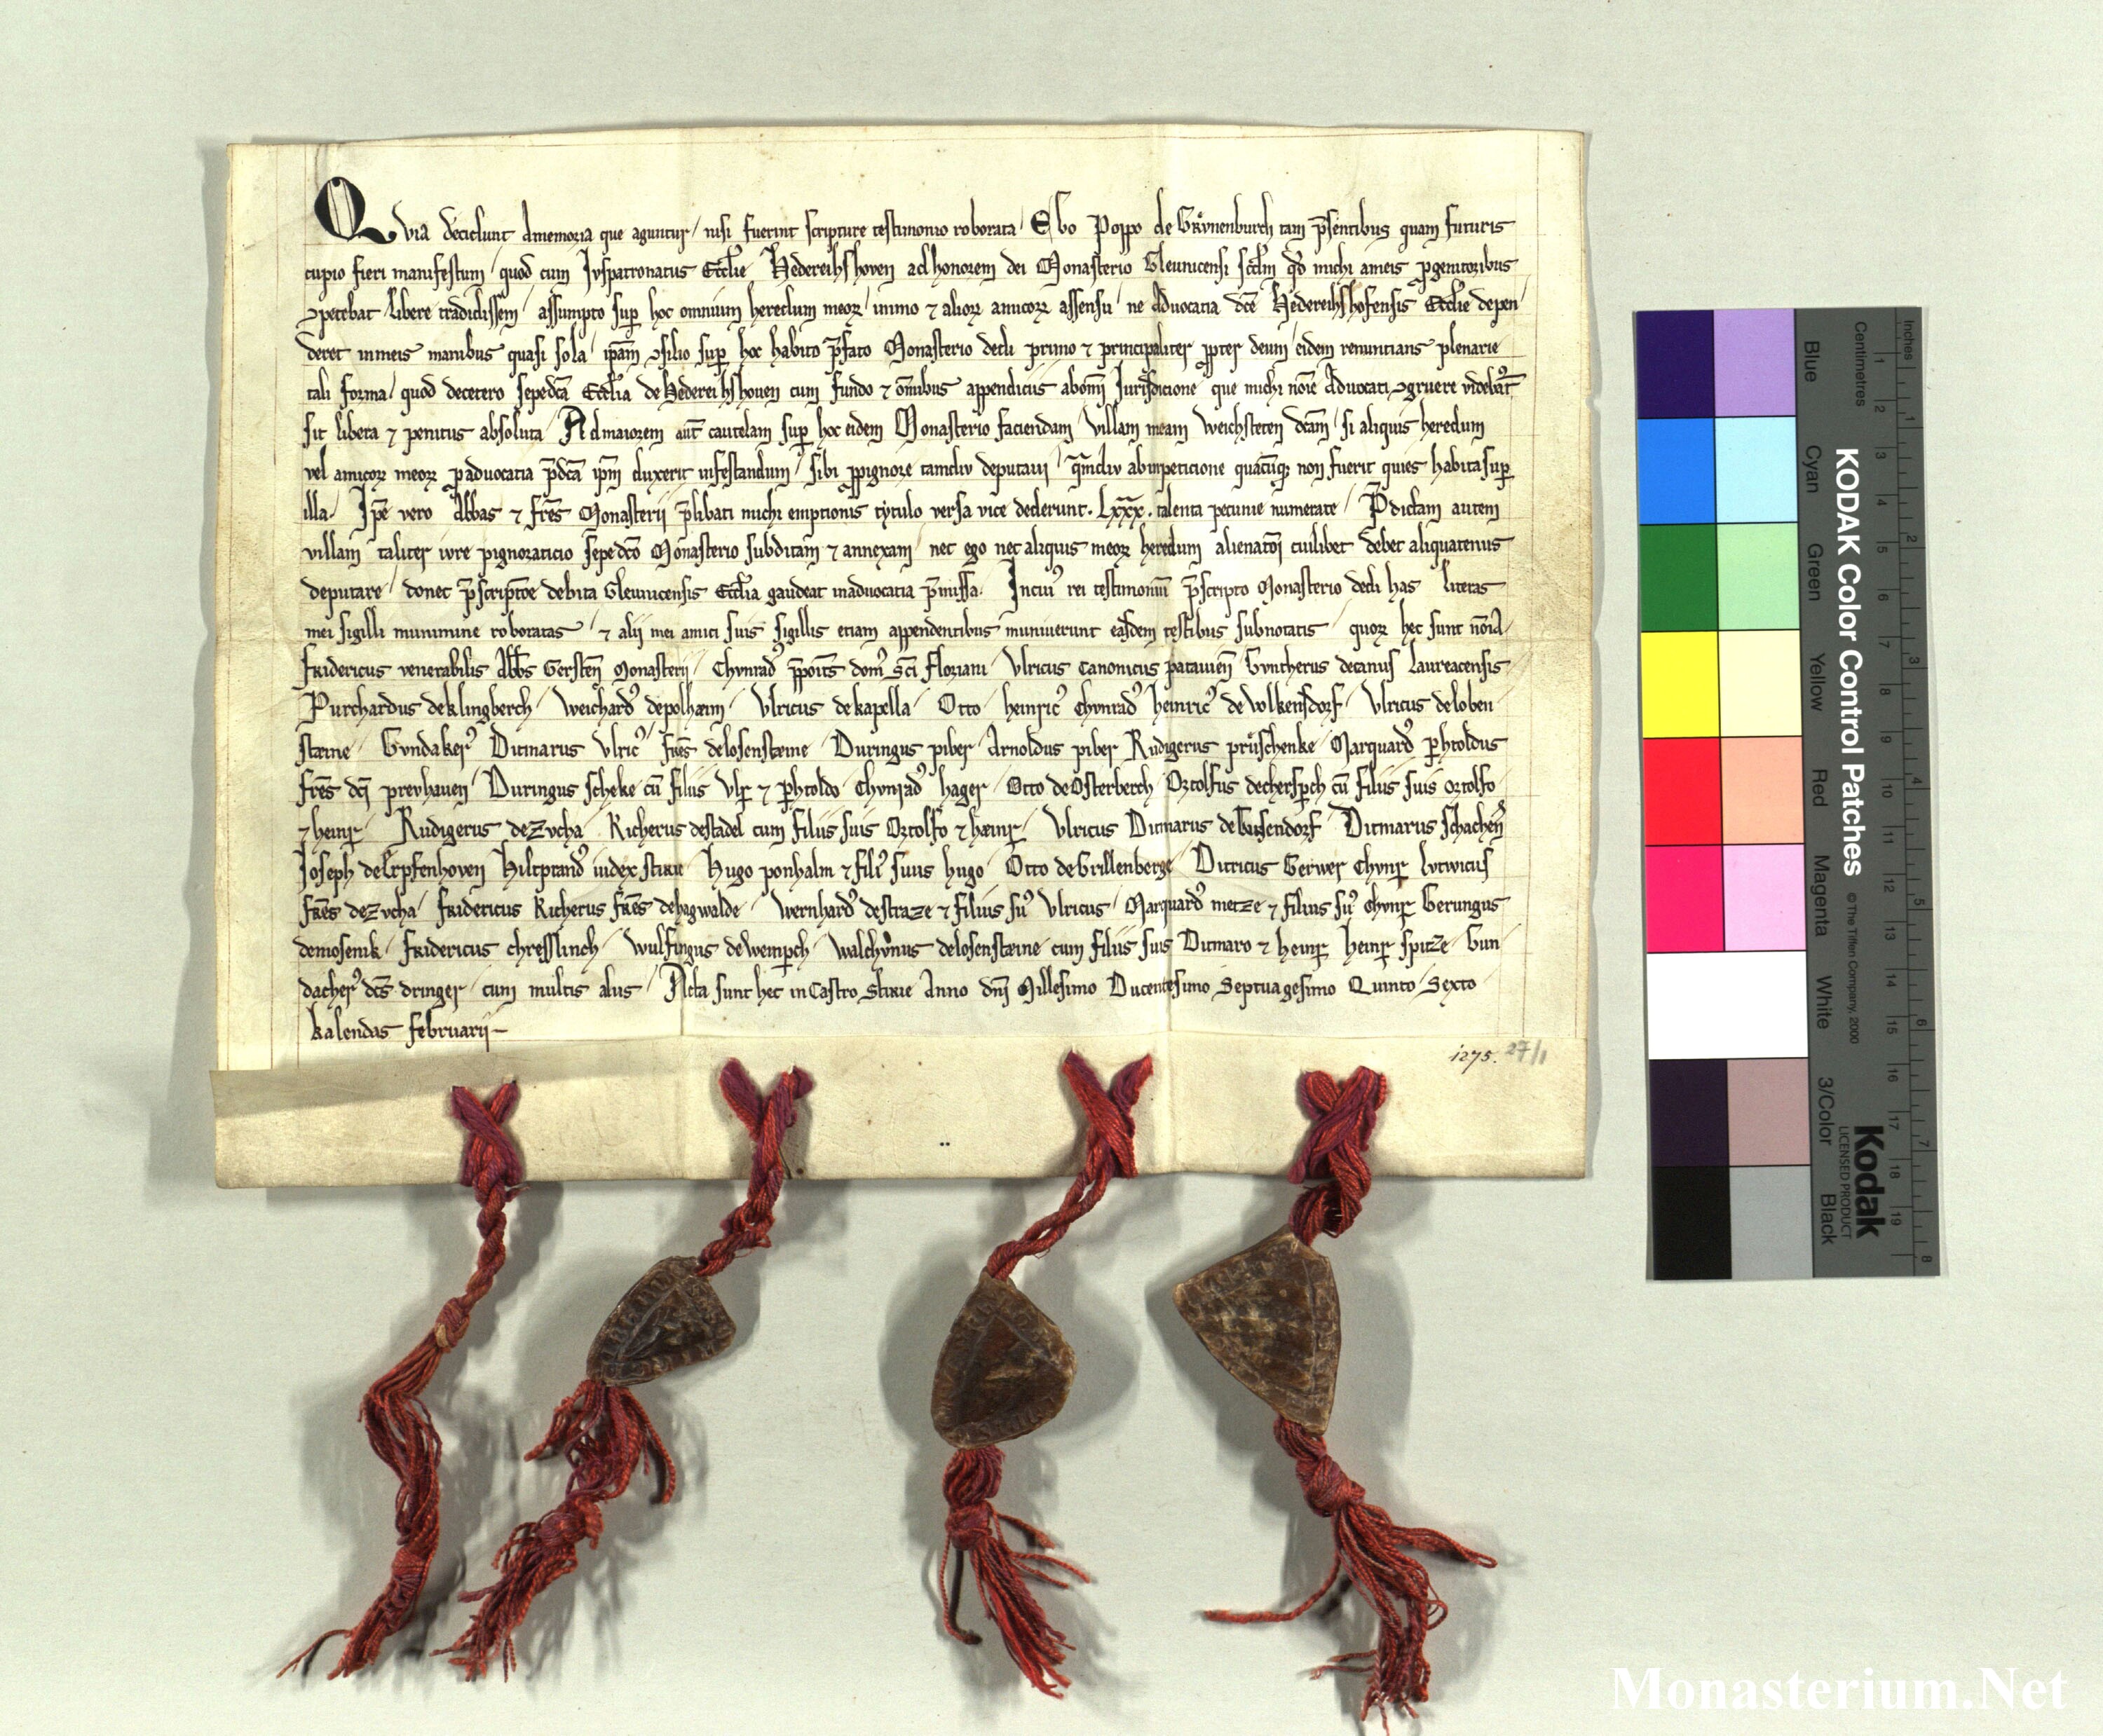 Qvia decidunt a memoria que aguntur / nisi fuerint scripture testimonio roborata / Ego Poppo de Grvͦnenburch tam p̄sentibus quam futuris
cupio fieri manifestum / quod cum Ivspatronatus Eccl̄ie Hedereihshoven ad honorem dei Monasterio Gleunicensi sc̄dm qd̄ michi a meis ꝓgenitoribus
ꝯpetebat / libere tradidissem / assumpto sup̱ hoc omnium heredum meoꝝ / immo ⁊ alioꝝ amicoꝝ assensu / ne Advocatia dc̄e Hedereihshofensis Eccl̄ie depen
deret in meis manibus quasi sola / ip̄am ꝯsilio sup̱ hoc habito p̄fato Monasterio dedi primo ⁊ principaliter ꝓpter deum / eidem renuntians plenarie
tali forma / quod decetero sepedc̄a Eccl̄ia de Hedereihshouen cum fundo ⁊ om̄ibus appendiciis ab om̄i Iurisdicione que michi noīe Aduocati ꝯgruere videbat᷑
sit libera ⁊ penitus absoluta / Ad maiorem aut̄ cautelam sup̱ hoc eidem Monasterio faciendam / villam meam Weichsteten dc̄am / si aliquis heredum
vel amicoꝝ meoꝝ ꝓ aduocatia p̄dc̄a ip̄m duxerit infestandum / sibi ꝓ pignore tamdiv deputaui / qᵃmdiv ab impeticione quacūqꝫ non fuerit quies habita sup̱
illa / Ip̄e vero Abbas ⁊ fr̄es Monasterij p̄libati michi emptionis tytulo versa vice dederunt . Lxxx . talenta pecunie numerate / P̄dictam autem
villam taliter iure pignoraticio sepedc̄o Monasterio subditam ⁊ annexam / nec ego nec aliquis meoꝝ heredum alienatōi cuilibet debet aliquatenus
deputare / donec p̄scriptōe debita Gleunicensis Eccl̄ia gaudeat in aduocatia p̄missa . In cuiꝰ rei testimoniū p̄scripto Monasterio dedi has literas
mei sigilli munimine roboratas / ⁊ alii mei amici suis sigillis etiam appendentibus muniuerunt easdem testibus subnotatis / quoꝝ hec sunt noīa /
Fridericus venerabilis Abb̄s Gersten̄ Monasterij / Chvnradꝰ p̄poitꝰ domꝰ sc̄i Floriani / Vlricus Canonicus patauien̄ Gvntherus decanus Laureacensis
Purchardus de klingberch / Weichardꝰ de polhaim / Vlricus de kapella / Otto heinricꝰ Chvnradꝰ heinricꝰ de Wolkensdorf / Vlricus de loben
staine / Gvndakerꝰ Ditmarus Vlricꝰ fr̄es de losenstaine / Duringus piber / Arnoldus piber Rudigerus pruͤschenke / Marquardꝰ p̱htoldus
fr̄es dc̄i prevhauen / Duringus scheke cū filiis Vlr̄ ⁊ p̱htoldo / Chvnradꝰ hager / Otto de Osterberch / Ortolfus de chersp̱ch cū filiis suis ortolfo
⁊ heinr̄ / Rudigerus de Zvcha Richerus de stadel cum filiis suis Ortolfo ⁊ hæinr̄ / Vlricus Ditmarus de Gusendorf Ditmarus schachen̄
Ioseph de Erpfenhoven Hiltprandꝰ iudex stirie / Hugo ponhalm ⁊ filiꝰ suus hugo / Otto de Grillenberge / Ditricus Gerwer Chvnr̄ Lvtwicus
fr̄es de Zvcha / Fridericus Richerus fr̄es de hagwalde / Wernhardꝰ de straze ⁊ filius suꝰ Vlricus / Marquardꝰ metze ⁊ filius suꝰ Chvnr̄ Gerungus
de mosenik / Fridericus chresslinch / Wulfingus de Wemp̱ch / Walchvnus de losenstaine cum filiis suis Ditmaro ⁊ heinr̄ / heinr̄ spitze / Gun
dacherꝰ dc̄s dringer / cum multis aliis / Acta sunt hec in Castro Stirie Anno dn̄j Millesimo Ducentesimo Septuagesimo Quinto / Sexto
kalendas februarij
1275. 27/1
Inches
Centimetres
1 2 3 4 5 6 7 8 9 10 11 12 13 14 15 16 17 18 19
1 2 3 4 5 6 7 8
KODAK Color Control Patches
© The Tiffen Company, 2000
Kodak
LICENSED PRODUCT
Blue
Cyan
Green
Yellow
Red
Magenta
White
3/Color
Black
Monasterium.Net